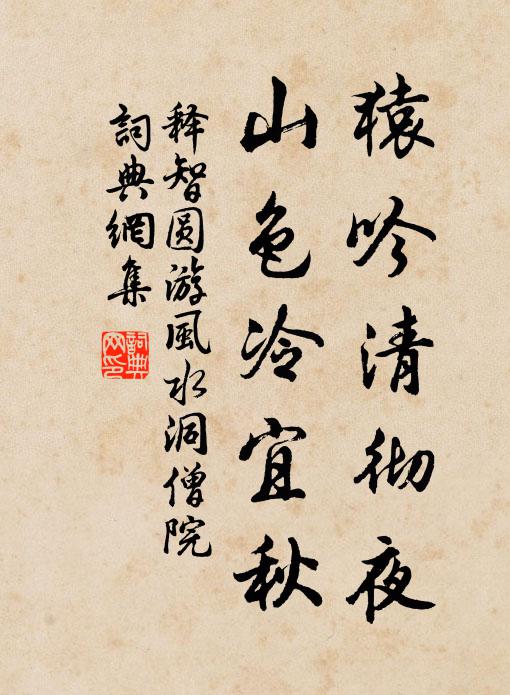 猿吟清彻夜
山色冷宜秋
释智圆游風水洞僧院
詞典網集
詞典
网印